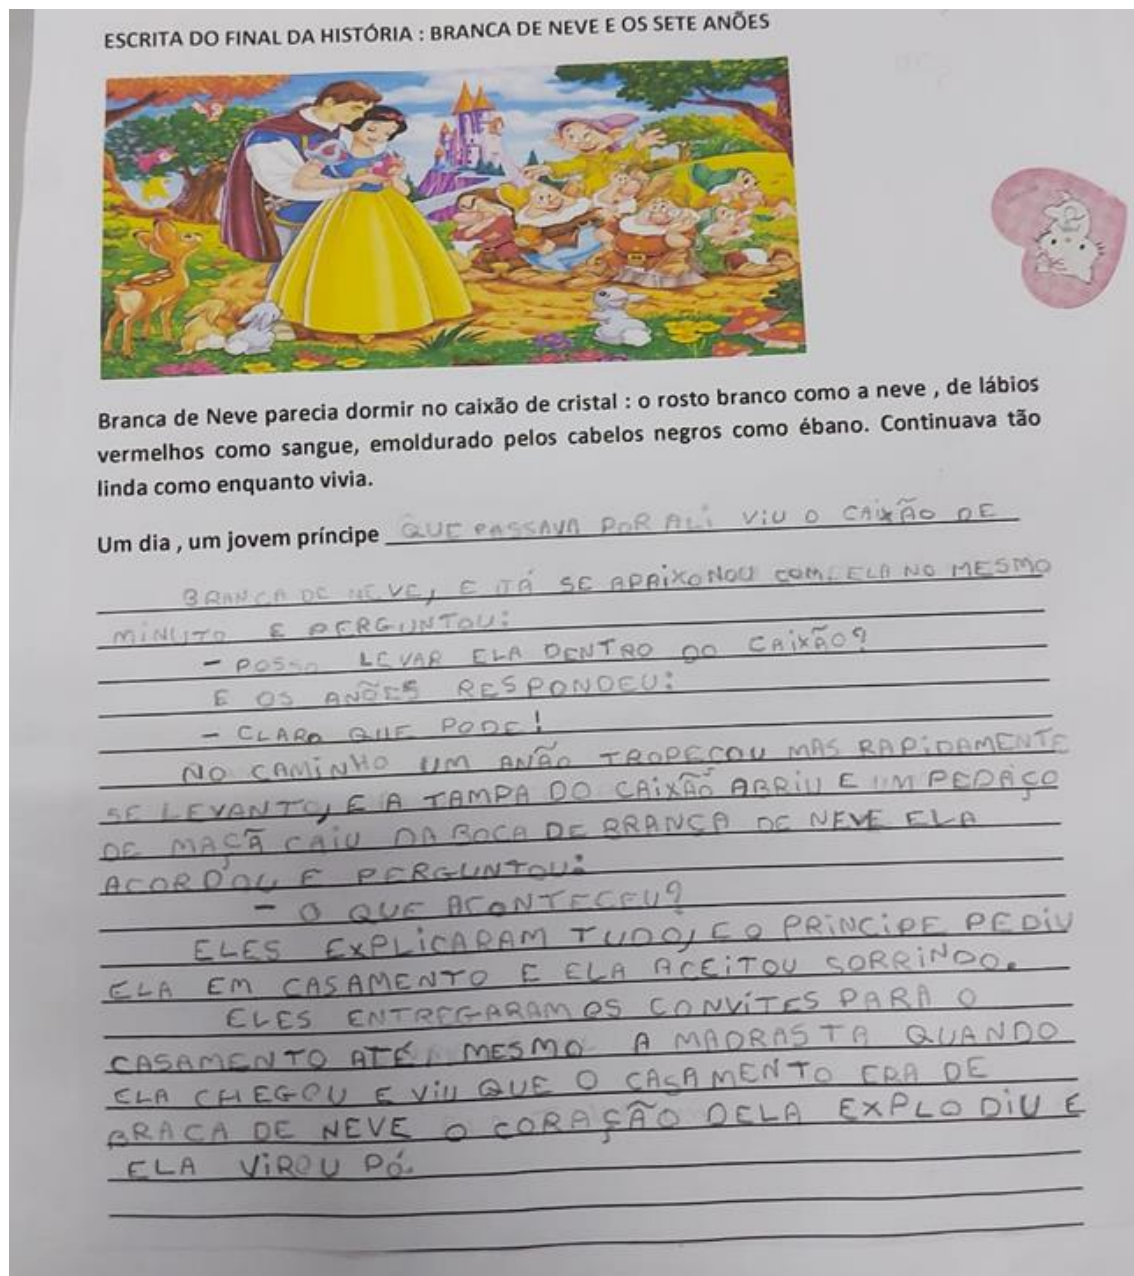 ESCRITA DO FINAL DA HISTÓRIA : BRANCA DE NEVE E OS SETE ANÕES
Branca de Neve parecia dormir no caixão de cristal : o rosto branco como a neve , de lábios
vermelhos como sangue, emoldurado pelos cabelos negros como ébano. Continuava tão
linda como enquanto vivia.
Um dia , um jovem príncipe QUE PASSAVA POR ALI VIU O CAIXÃO DE
BRANCA DE NEVE, E JÁ SE APAIXONOU COM ELA NO MESMO
MINUTO E PERGUNTOU:
- POSSO LEVAR ELA DENTRO DO CAIXÃO?
E OS ANÕES RESPONDEU:
- CLARO QUE PODE!
NO CAMINHO UM ANÃO TROPEÇOU MAS RAPIDAMENTE
SE LEVANTO, E A TAMPA DO CAIXÃO ABRIU E UM PEDAÇO
DE MAÇÃ CAIU DA BOCA DE BRANÇA DE NEVE ELA
ACORDOU E PERGUNTOU:
- O QUE ACONTECEU?
ELES EXPLICARAM TUDO, E O PRINCIPE PEDIU
ELA EM CASAMENTO E ELA ACEITOU SORRINDO.
ELES ENTREGARAM OS CONVITES PARA O
CASAMENTO ATÉ MESMO A MADRASTA QUANDO
ELA CHEGOU E VIU QUE O CASAMENTO ERA DE
BRACA DE NEVE O CORAÇÃO DELA EXPLODIU E
ELA VIROU PÓ.